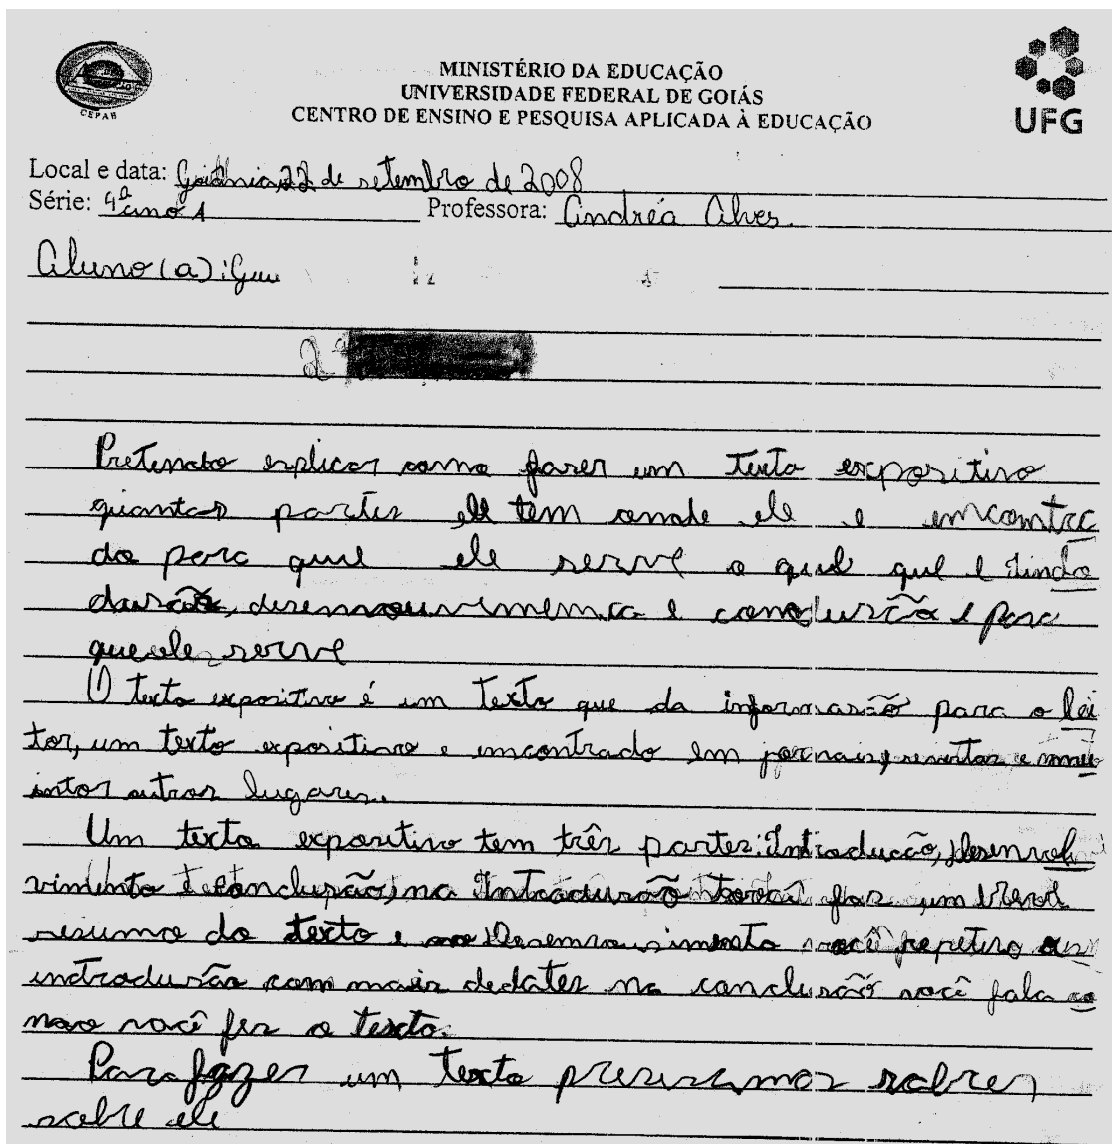 CEPAE
MINISTÉRIO DA EDUCAÇÃO
UNIVERSIDADE FEDERAL DE GOIÁS
CENTRO DE ENSINO E PESQUISA APLICADA À EDUCAÇÃO
UFG
Local e data: Goiânia, 22 de setembro de 2008
Série: 4º ano 1 Professora: Andréa Alves.
Aluno(a):
2ª
Pretendo esplicar como fazer um texto expositivo
quantas partes ele tem onde ele e emcomtra
do para que ele serve o quel que e
e comclusão e para
que ele serve
O texto expositivo é um texto que da informasão para o lei
tor, um texto expositivo e emcontrado em jornais, revistas e
outros lugares.
Um texto expositivo tem três partes: Introducão, Desenvol
vimento e conclusão, na Introdusão você faz um breve
resumo do texto e no você
indrodusão com mais na conclusão você fala co
mo você fez o texto.
Para fazer um texto presisamos saber
sobre ele